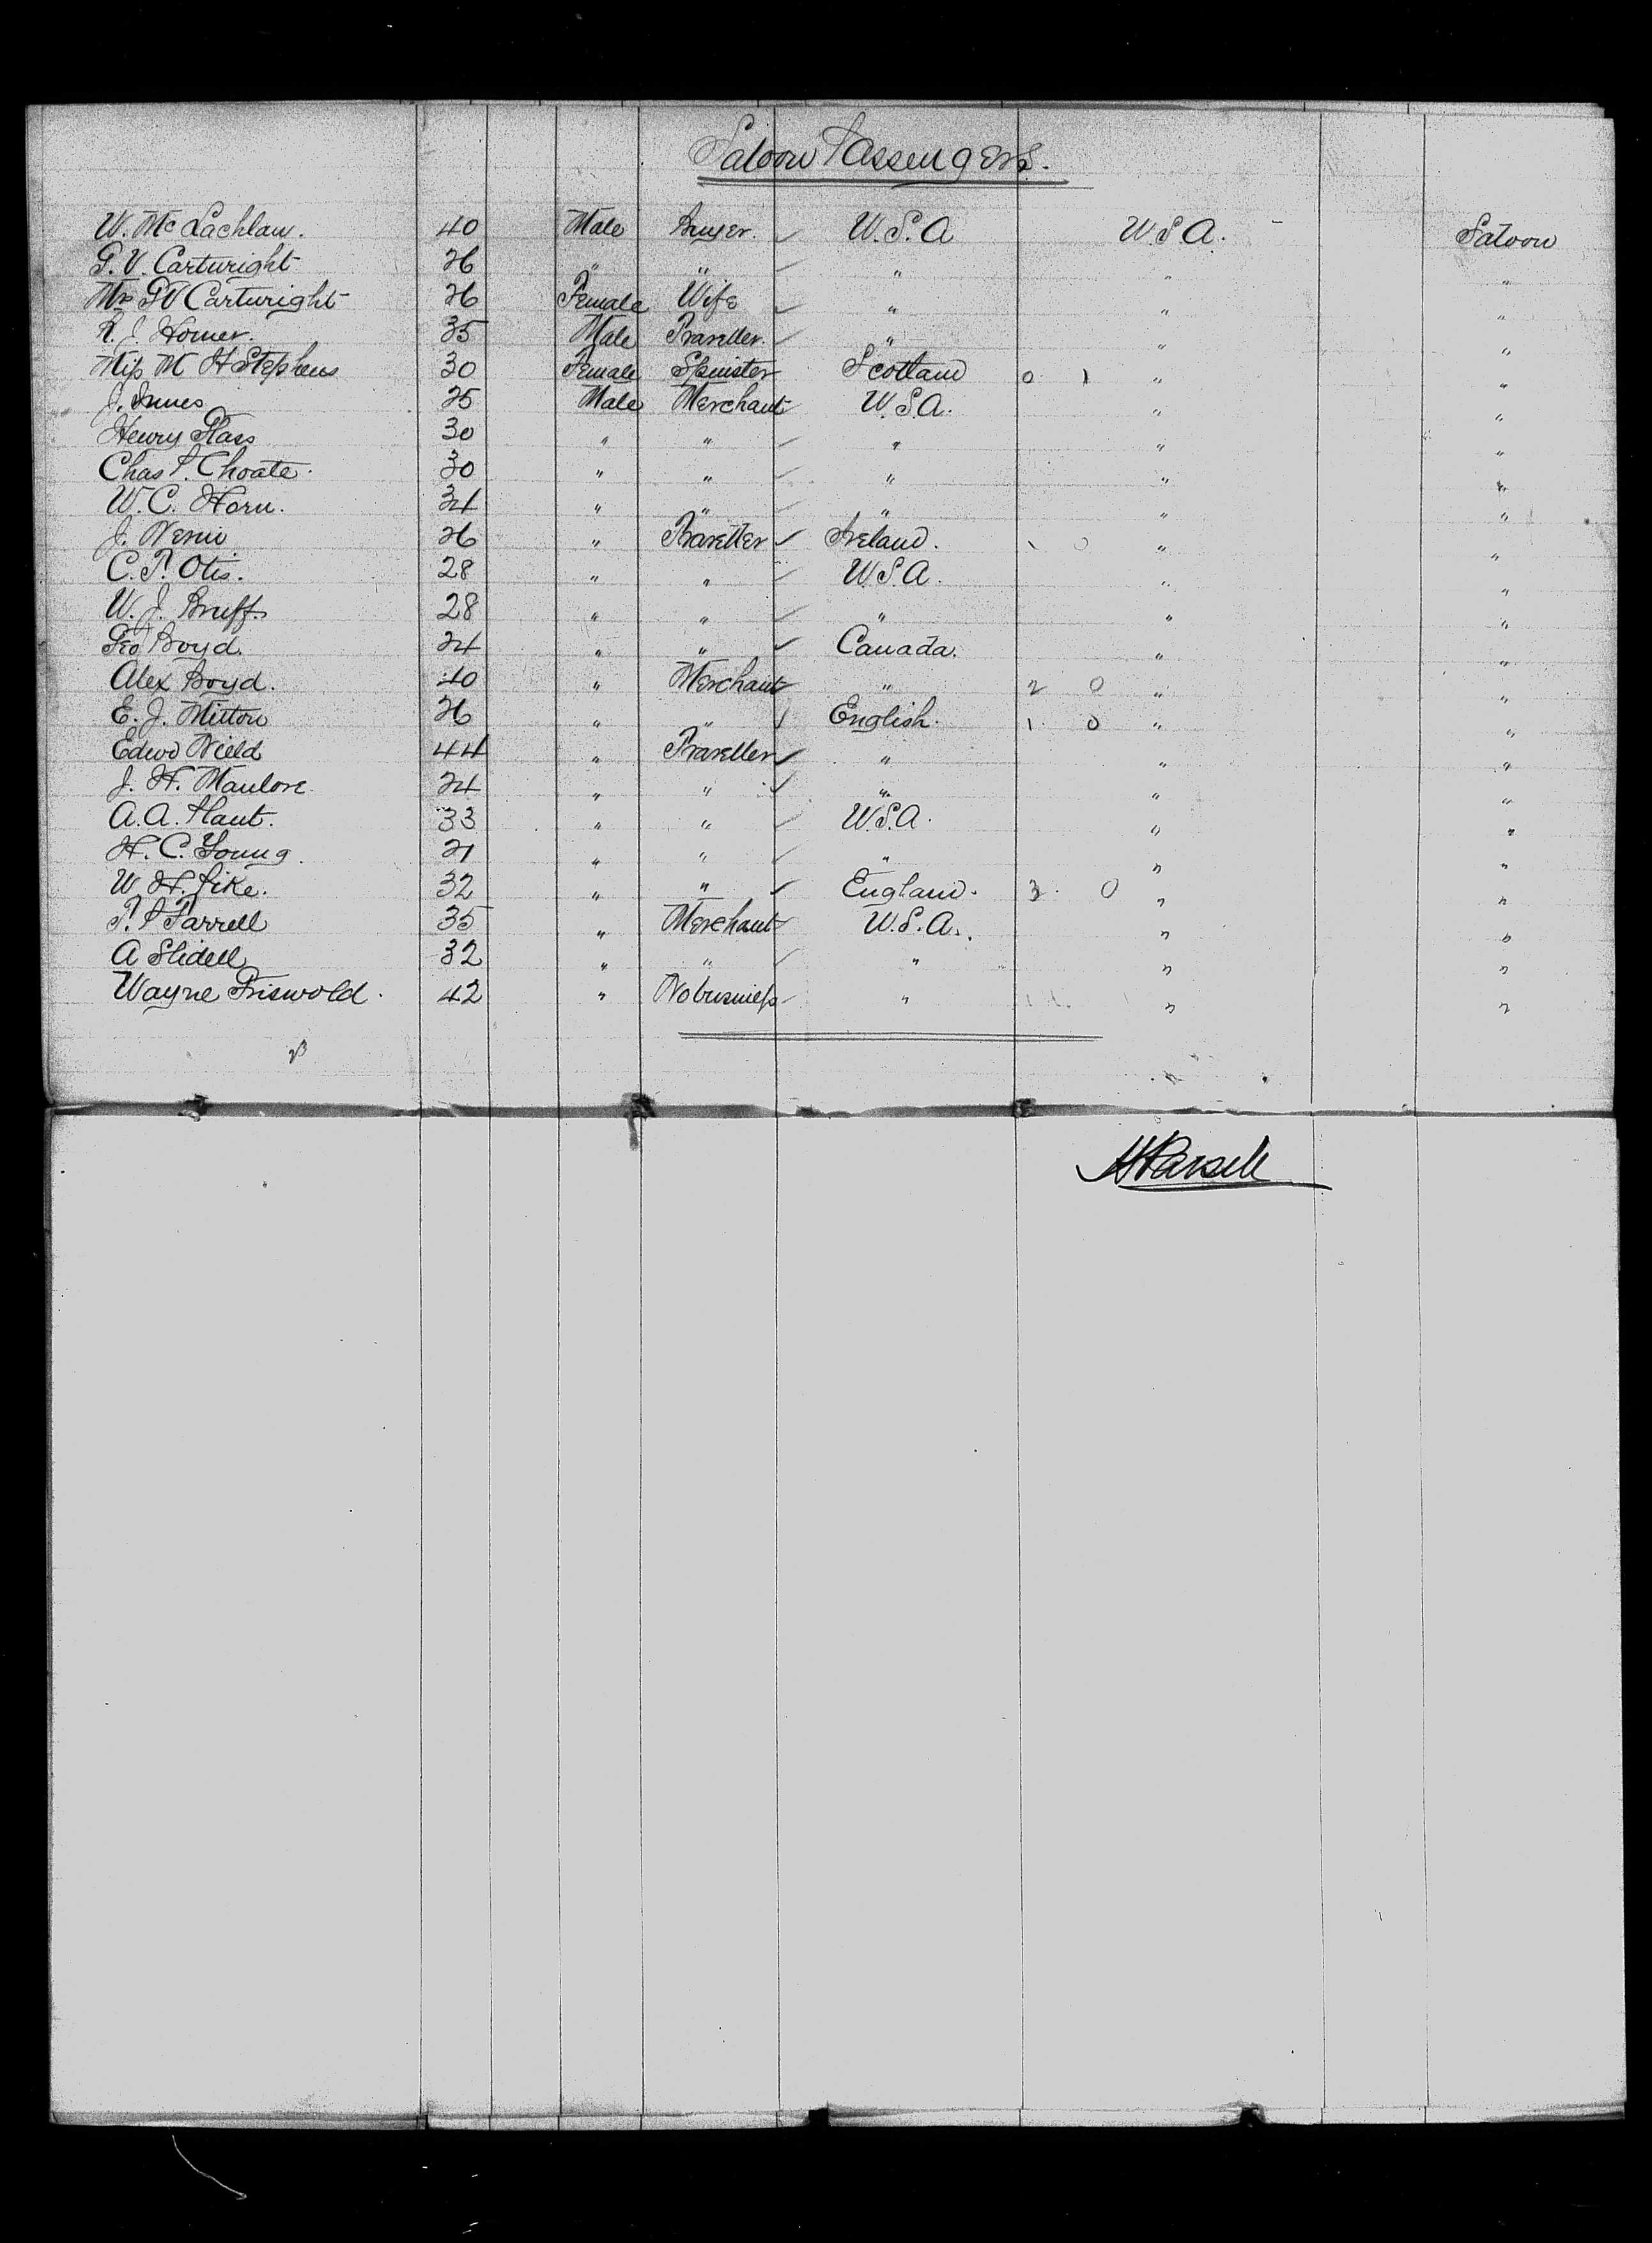 Saloon Passengers.
W. McLachlan. 40 Male Buyer. U.S.A U.S.A. Saloon
G. V. Cartwright 26 " " " " "
Mrs G V Cartwright 26 Female Wife " " "
R. J. Homer. 35 Male Traveller. " " "
Miss M H Stephens 30 Female Spinster Scotland 0 1 " "
J. Innes 25 Male Merchant U.S.A. " "
Henry Hass 30 " " " " "
Chas P. Choate. 30 " " " " "
W. C. Horn. 34 " " " " "
J. 26 " Traveller Ireland. 1 0 " "
C. T. Otis. 28 " " U.S.A. " "
W. J. Bruff. 28 " " " " "
Geo Boyd. 24 " " Canada. " "
Alex Boyd. 40 " Merchant " 2 0 " "
E. J. Mitton 26 " " English. 1 0 " "
Edwd Nield 44 " Traveller " " "
J. H. 24 " " " " "
A. A. Plant. 33 " " U.S.A. " "
H. C. Young. 21 " " " " "
W H. Pike. 32 " " England. 3 0 " "
T. P Farrell 35 " Merchant U.S.A. " "
A Slidell 32 " " " " "
Wayne Griswold. 42 " No business " " "
23
H Parsell